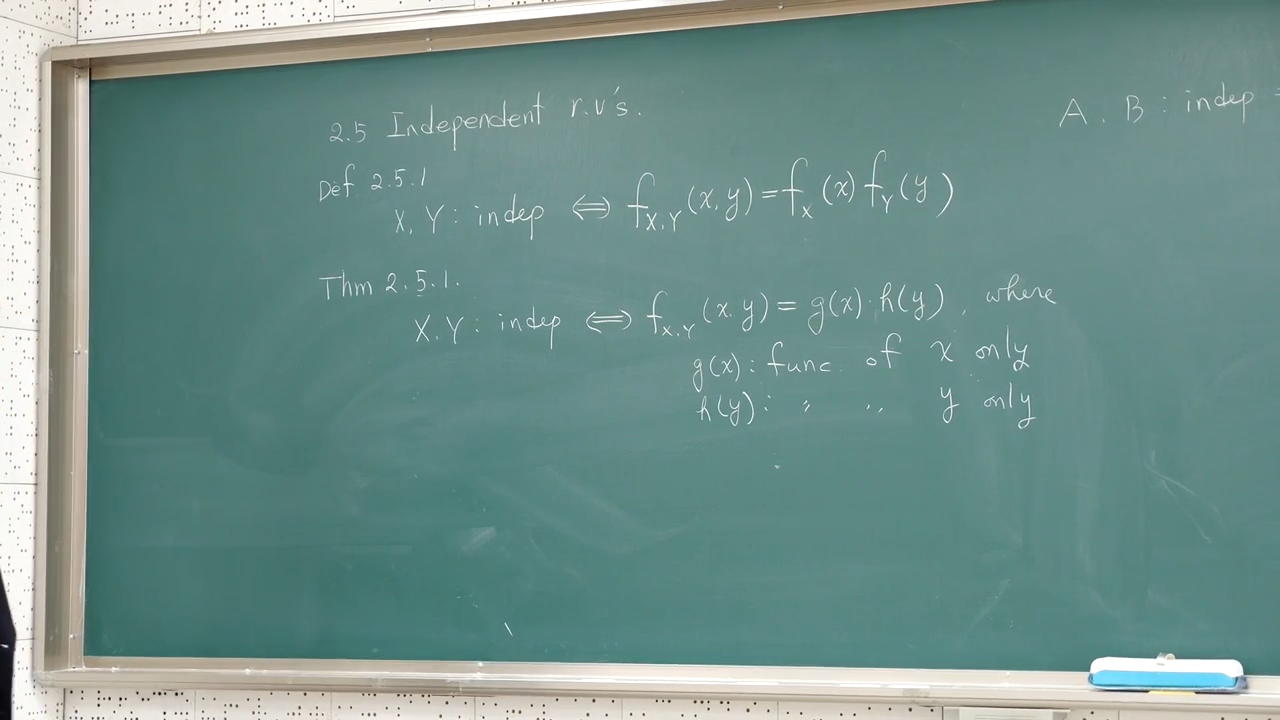 2.5 Independent r.v's.
Def 2.5.1
X, Y : indep ⇔ f_{X,Y}(x,y) = f_X(x) f_Y(y)
Thm 2.5.1.
X, Y : indep ⇔ f_{X,Y}(x,y) = g(x)·h(y), where
g(x) : func. of x only
h(y) : 〃 〃 y only
A, B : indep =